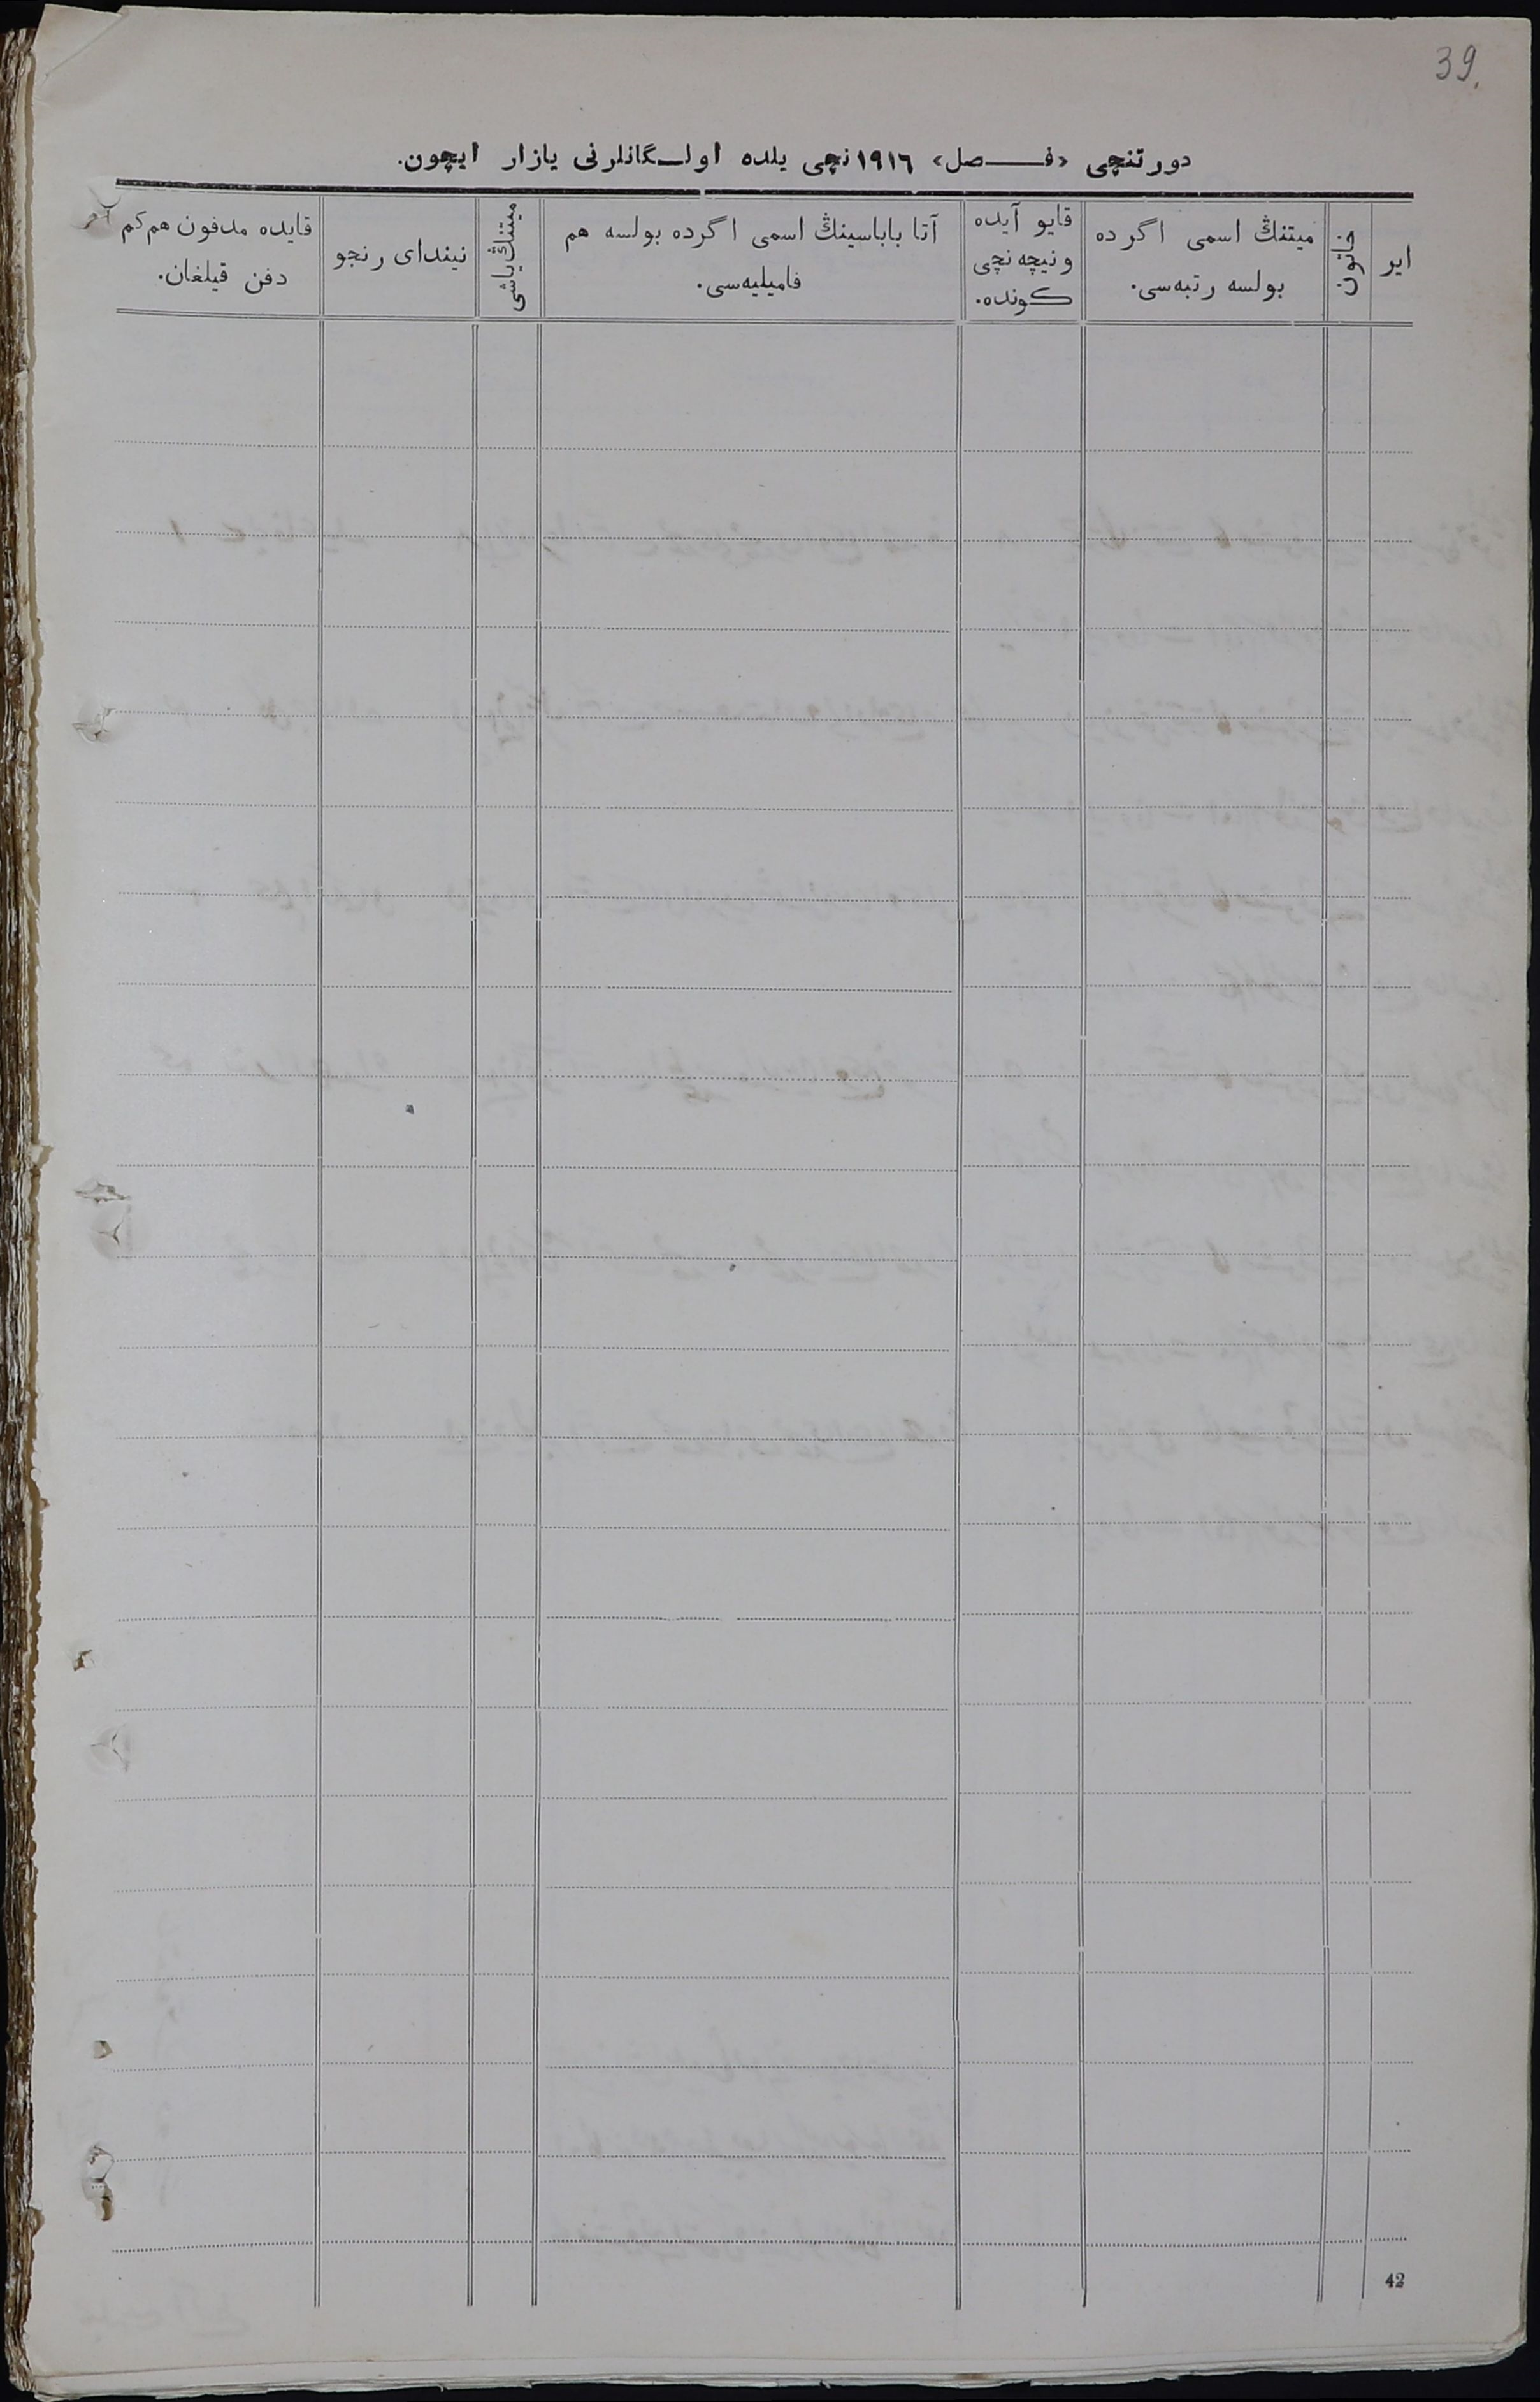 39.
دورتنچی «فصل» ١٩١٦نچی يلده اولگانلرنی يازار ايچون.
اير
خاتون
ميتنڭ اسمی اگرده
بولسه رتبه‌سی.
قايو آيده
ونيچه‌نچی
كونده.
آتا باباسينڭ اسمی اگرده بولسه هم
فاميليه‌سی.
ميتنڭ ياشی
نيندای رنجو
قايده مدفون هم كم
دفن قيلغان.
42